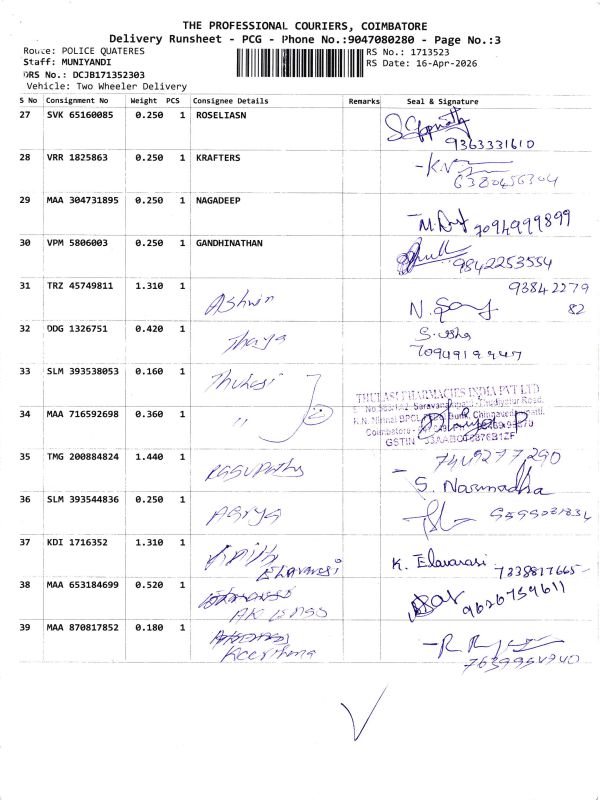 THE PROFESSIONAL COURIERS, COIMBATORE
Delivery Runsheet - PCG - Phone No.:9047080280 - Page No.:3
Route: POLICE QUATERES
RS No.: 1713523
Staff: MUNIYANDI
RS Date: 16-Apr-2026
DRS No.: DCJB171352303
Vehicle: Two Wheeler Delivery
S No Consignment No Weight PCS Consignee Details Remarks Seal & Signature
27 SVK 65160085 0.250 1 ROSELIASN
9363331610
28 VRR 1825863 0.250 1 KRAFTERS
6380456304
29 MAA 304731895 0.250 1 NAGADEEP
7094999899
30 VPM 5806003 0.250 1 GANDHINATHAN
9842253554
31 TRZ 45749811 1.310 1 Ashwin
93842279
82
32 DDG 1326751 0.420 1 Thaya
S. usha
33 SLM 393538053 0.160 1 Thulasi
THULASI PHARMACIES INDIA PVT LTD
34 MAA 716592698 0.360 1 "
Coimbatore
GSTIN
35 TMG 200884824 1.440 1 Pasupathy
7449277290
S. Narmadha
36 SLM 393544836 0.250 1
37 KDI 1716352 1.310 1
Elavarasi
K. Elavarasi 7338817665
38 MAA 653184699 0.520 1
9626759611
39 MAA 870817852 0.180 1
Keerthana